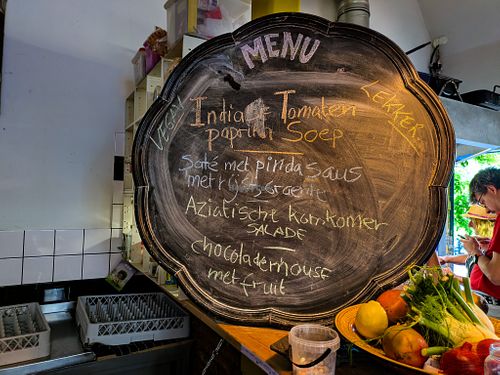 MENU
VEGAN
LEKKER
Indiase Tomaten
paprika Soep
Saté met pinda saus
met rijst groente
Aziatische komkomer
SALADE
chocolademousse
met fruit